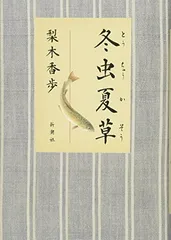 冬虫夏草
とうちゅうかそう
梨木香歩
新潮社